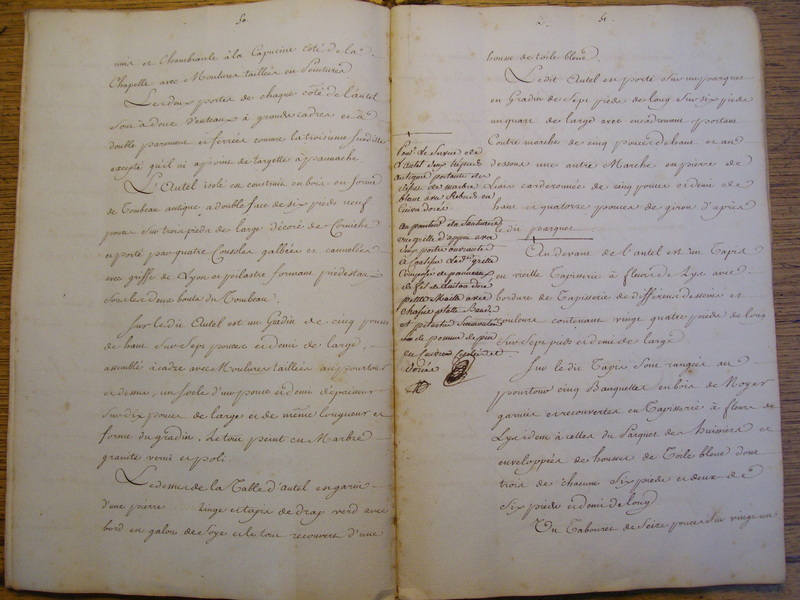 50
unis et Chambranle à la Capucine côté de la
Chapelle avec Moulures taillées en Peintures
Les deux portes de chaque côté de l'autel
sont à deux Venteaux à grands cadres et à
double parement et ferrées comme la troisieme susditte
excepté qu'il n'y a point de targette à pannache
L'Autel isolé en construit en bois en forme
de Tombeau antique a double face de six pieds neuf
pouces sur trois pieds de large décoré de Corniche
et porté par quatre Consoles galbées et cannelées
avec griffe de Lyon et pilastre formant piédestaux
sous les deux bouts du Tombeau.
Sur ledit Autel est un Gradin de cinq pouces
de haut sur sept pouces et demi de large,
assemblé à cadre avec Moulures taillées au pourtour
et dessus, un socle d'un pouce et demi d'épaisseur
sur dix pouces de large et de même longueur et
forme du gradin. Le tout peint en Marbre
granité verni et poli.
Le dessus de la Table d'autel est garni
d'une pierre linge et tapis de drap verd avec
bord en galon de Soye et le tout recouvert d'une
51
housse de toile bleue.
Ledit Autel est porté sur un parquet
en Gradin de sept pieds de long sur six pieds
un quart de large avec encadrement portant
Contre marche de cinq pouces de haut et au
dessous une autre Marche en pierre de
Liais carderonnée de cinq pouces et demi de
haut et quatorze pouces de giron d'après
le dit parquet
Au devant de l'autel est un Tapis
en vieille Tapisserie à fleurs de Lys avec
bordure de Tapisserie de différents desseins et
couleurs contenant vingt quatre pieds de long
sur sept pieds et demi de large.
Sur le dit Tapis sont rangées au
pourtour cinq Banquettes en bois de Noyer
garnies et recouvertes en Tapisserie à fleurs de
Lys idem à celles du Parquet des huissiers et
enveloppées de housses de Toile bleue dont
trois de chacune six pieds et deux de
six pieds et demi de long
Un Tabouret de Seize pouces sur vingt un
l'autel deux
antique portant
de marbre
blanc avec
cuivre doré
d'appui avec
porte ouvrante
composée de panneaux
de fil de laiton doré
petite avec
chasse platte Bande
et pilastre
de pomme de pin
en cuivre
dorée